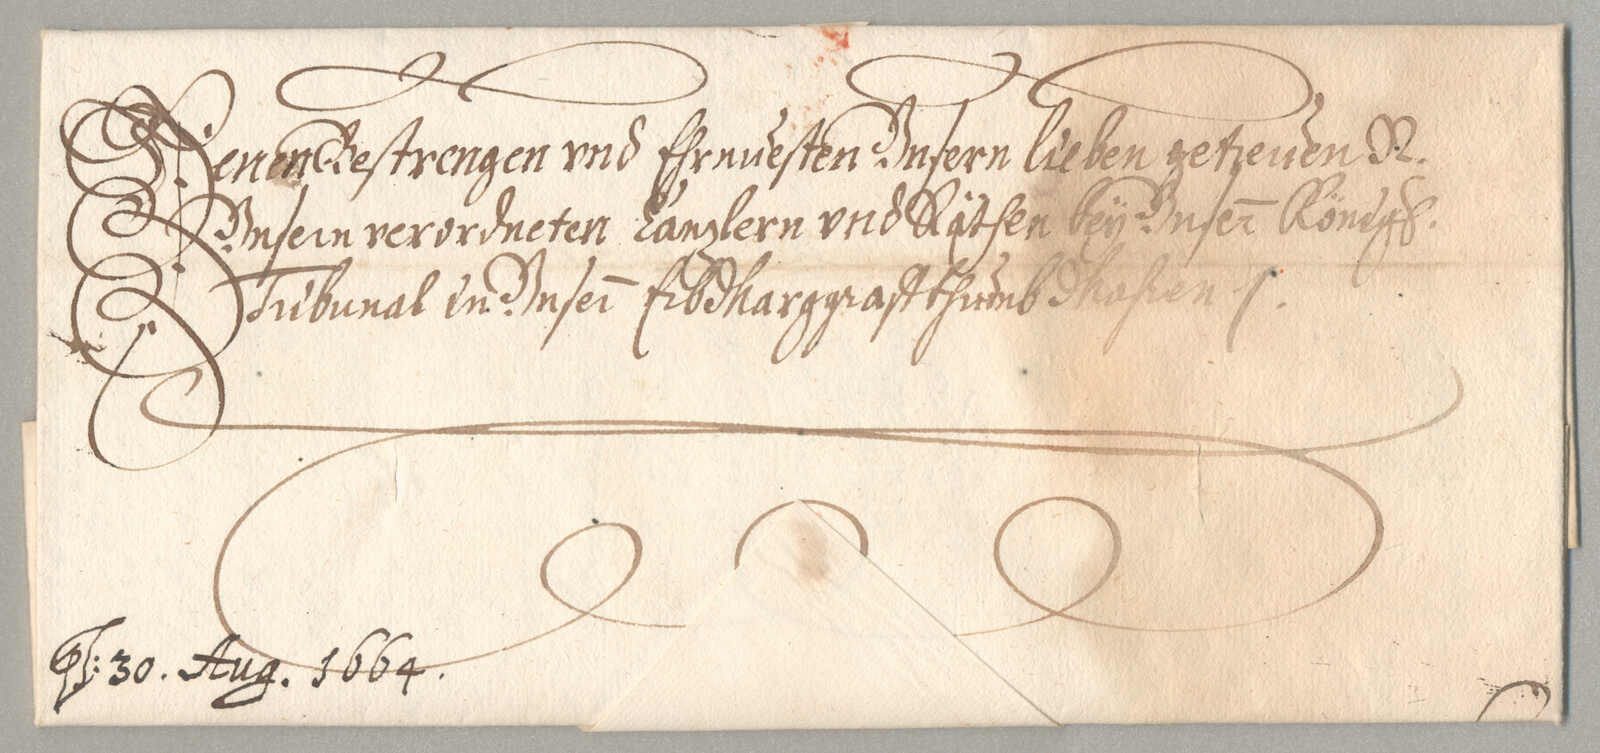 Denen Gestrengen vnd Ehrnuesten Vnsern lieben getreuen N.
Vnsern verordneten Canzlern vnd Räthen bey Vnserm Königl.
Tribunal in Vnserm Erbmarggrafthumb Mähren
30. Aug. 1664.